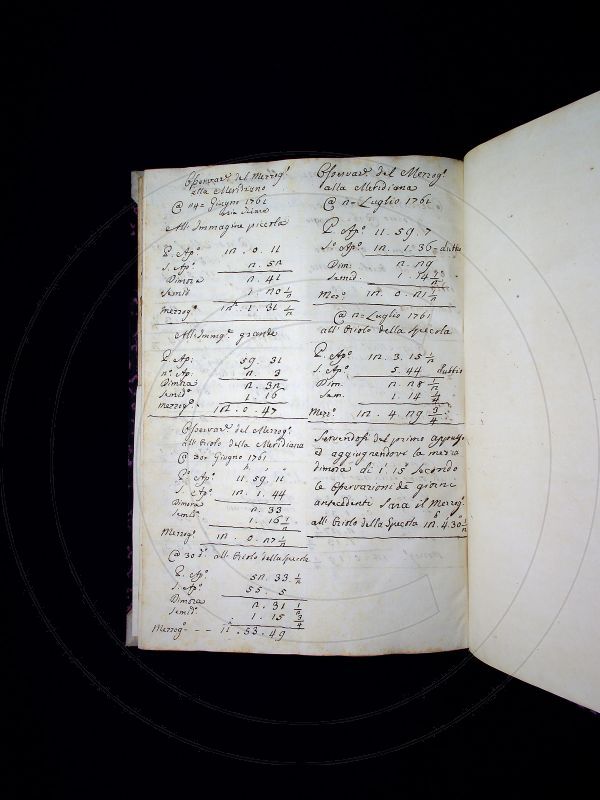 Osservaz.e del Mezzog.o
alla Meridiana
@ 24= Giugno 1761
All' Immagine piccola
P. Ap.o 12. 0. 11
S. Ap.o 2. 52
Dimora 2. 41
Semid 1. 20 1/2
Mezzog.o 12.h 1. 31 1/2
All' Immg.e grande
P. Ap: 59. 31
2.o Ap: 2. 3
Dimora 2. 32
Semid.o 1. 16
Mezzog.o 12. 0. 47
Osservaz.e del Mezzog.o
all' Oriolo della Meridiana
@ 30= Giugno 1761
P.o Ap.o 11. 59. 11
S. Ap.o 12. 1. 44
Dimora 2. 33
Semid. 1. 16 1/2
Mezzog.o 12. 0. 27 1/2
@ 30 d.o all' Oriolo della Specola
P. Ap.o 52. 33 1/2
S. Ap.o 55. 5
Dimora 2. 31 1/2
Semid.o 1. 15 3/4
Mezzog.o - - - 11. 53. 49
Osservaz.e del Mezzog.o
alla Meridiana
@ 2= Luglio 1761
P. Ap.o 11. 59. 7
S.o Ap.o 12. 1. 36= dubbio
Dim: 2. 29
Semid. 1. 14 1/2
Mez.o 12. 0. 21 1/2
@ 2= Luglio 1761
all' Oriolo della Specola
P. Ap.o 12. 3. 15 1/2
S. Ap.o 5. 44 dubbio
Dim. 2. 28 1/2
Sem. 1. 14 1/4
Mez.o 12. 4. 29 3/4
Servendosi del primo appulso
ed aggiugnendovi la mezza
dimora di 1'. 15" secondo
le Osservazioni de giorni
antecedenti sara il Mezzog.o
all' Oriolo della Specola 12.h 4.' 30." 1/2